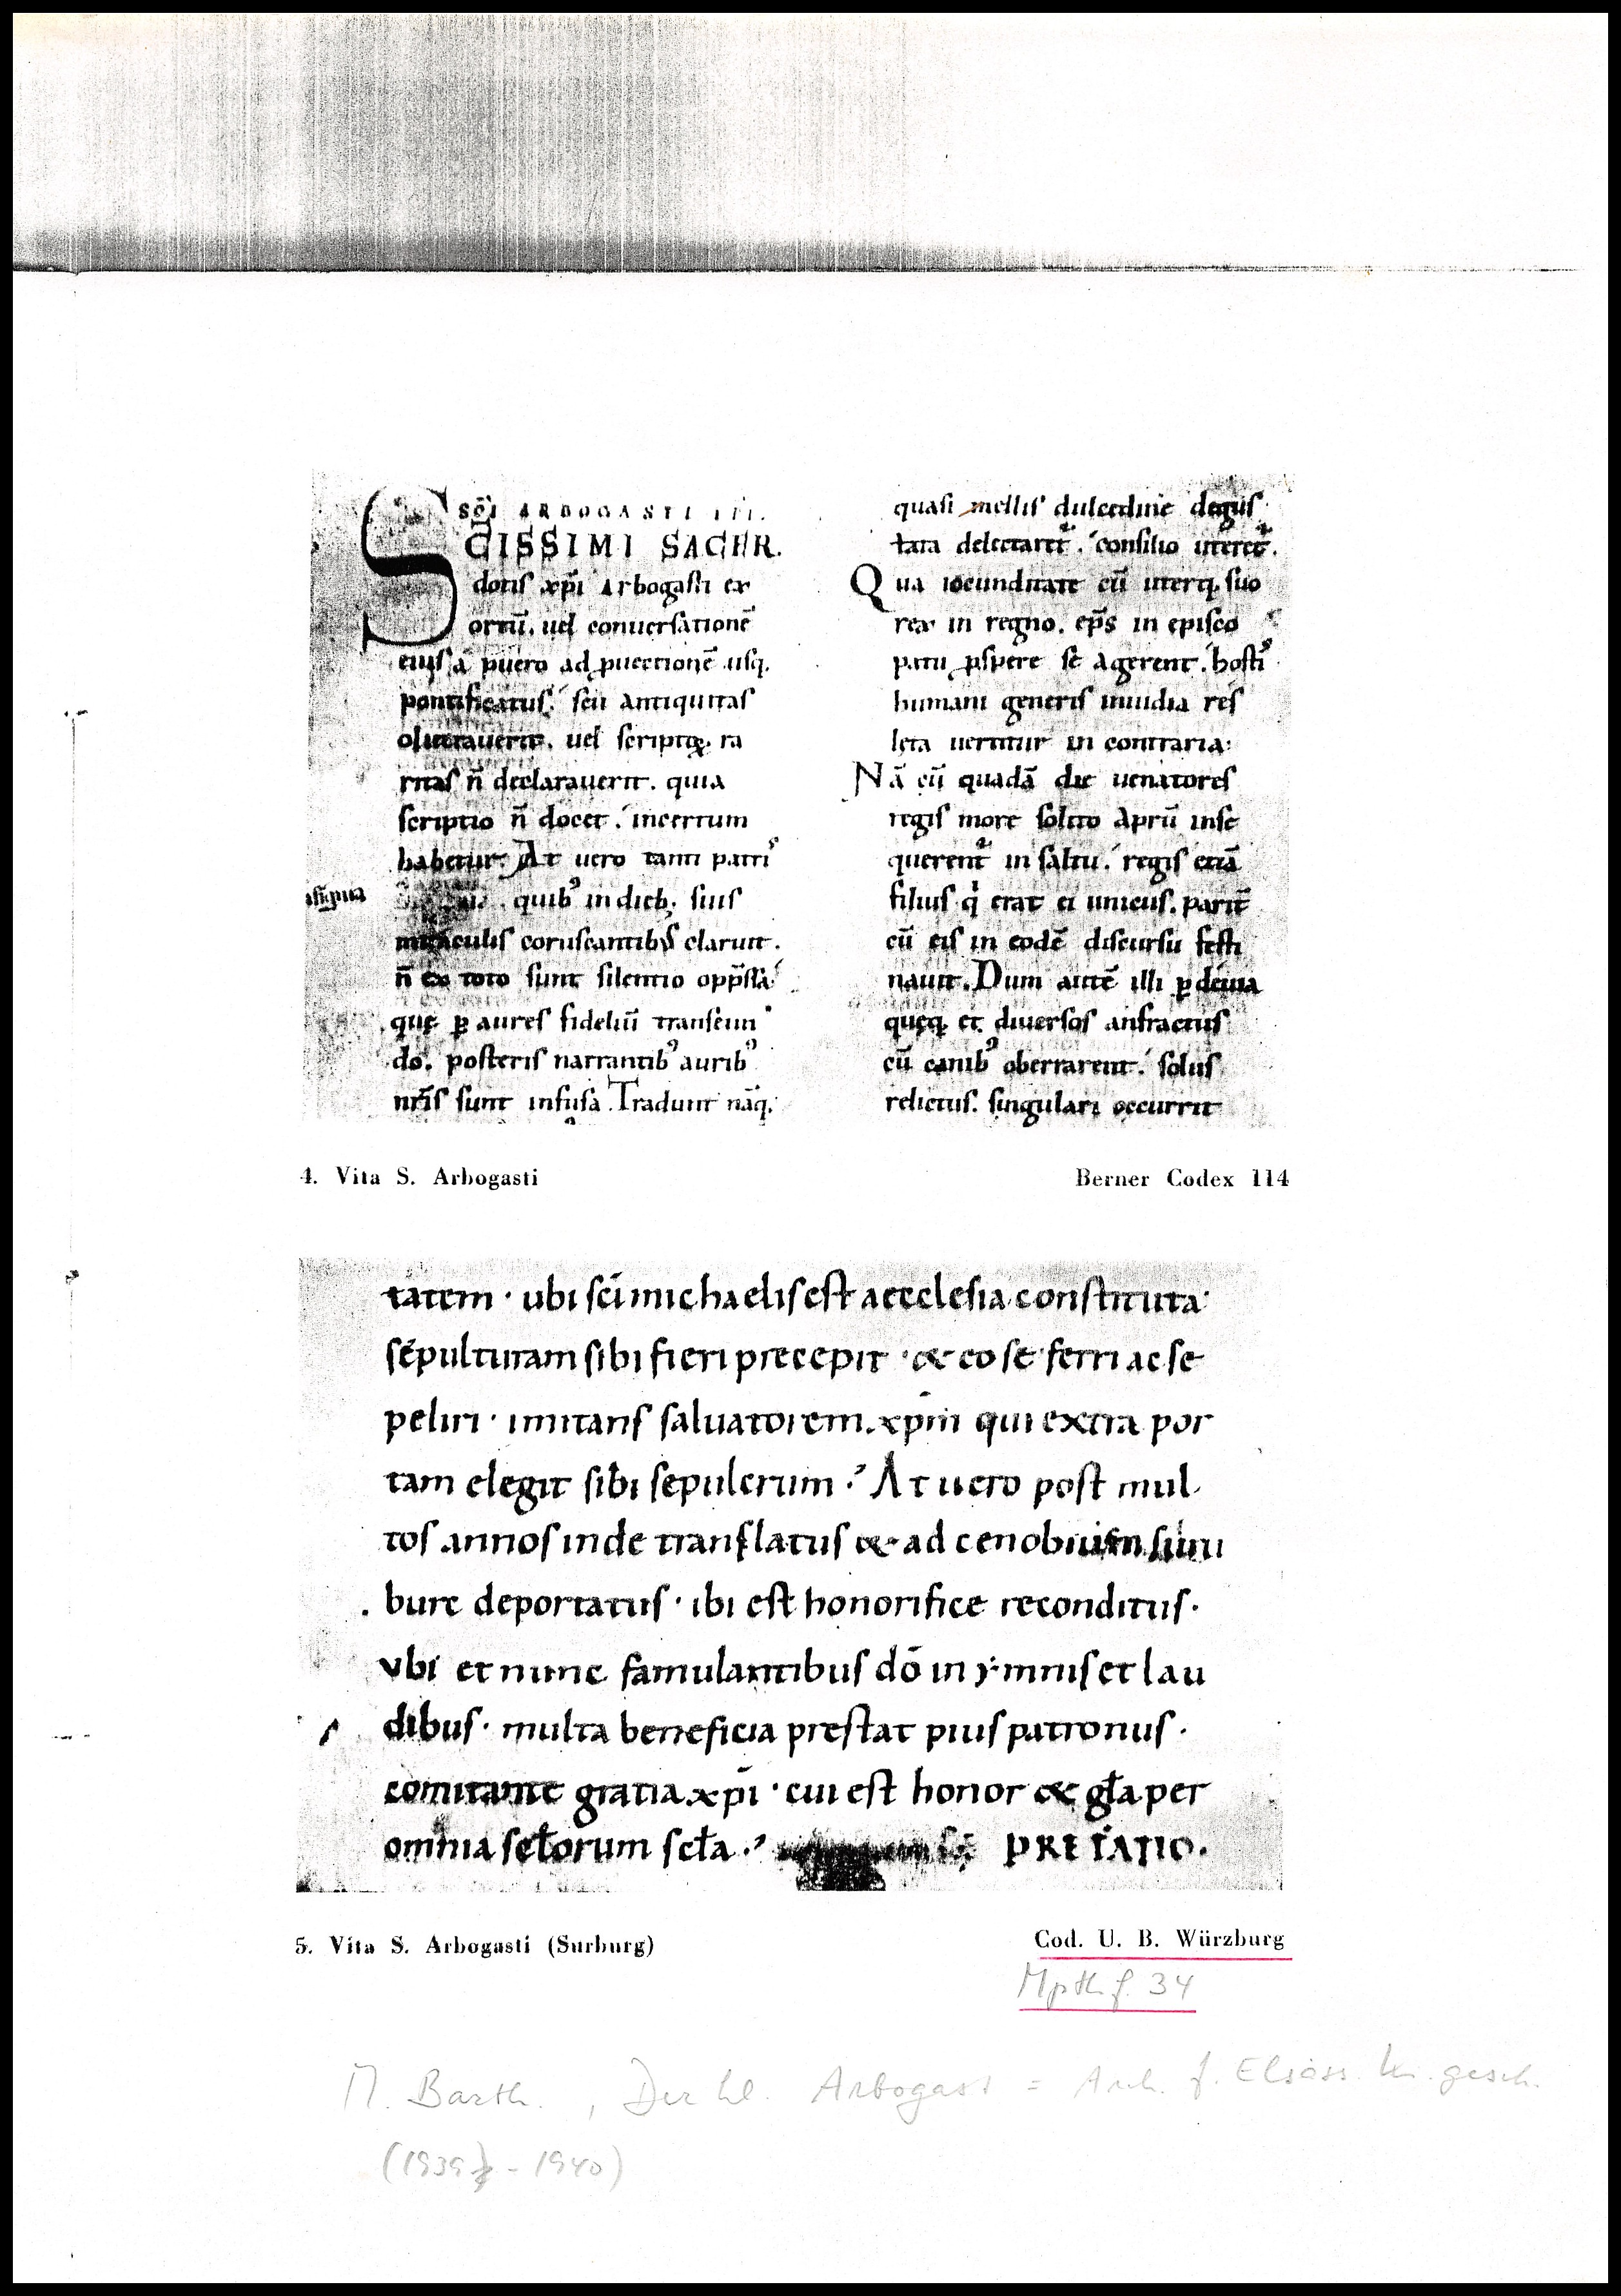 SCĪ ARBOGASTI
SCISSIMI SACER.
dotis xpī Arbogasti ex
ortū. uel conuersationē
eius a puero ad puectionē usq.
pontificatus. seu antiquitas
oblitterauerit. uel scriptoꝝ. ra
ritas n̄ declarauerit. quia
scriptio n̄ docet. incertum
habetur. At uero tanti patri᾽
quibꝰ in dieb; suis
miraculis coruscantibꝰ claruit.
n̄ ex toto sunt silentio opp̄ssa.
quę ꝑ aures fidelīu transeun
do. posteris narrantibꝰ auribꝰ
nr̄is sunt infusa. Tradunt nāq.
quasi mellis dulcedine degus
tata delectaret᷑. consilio uteret᷑.
Qua iocunditate cū uterq. suo
rex in regno. ep̄s in episco
patu ꝓspere se agerent. hosti᾽
humani generis inuidia res
leta uertitur in contraria:
Nā cū quadā die uenatores
regis more solito aprū inse
querent᷑ in saltu. regis etiā
filius q̇ erat ei unicus. parit̄
cū eis in eodē discursu festi
nauit. Dum autē illi ꝑ deuia
quęq. et diuersos anfractus
cū canibꝰ oberrarent. solus
relictus. singulari occurrit
4. Vita S. Arbogasti
Berner Codex 114
tatem · ubi scī michaelis est aecclesia constituta
sepulturam sibi fieri precepit · & eo se ferri ac se
peliri · imitans saluatorem. xpm̄ qui extra por
tam elegit sibi sepulcrum · At uero post mul
tos annos inde translatus & ad cenobium suru
burc deportatus · ibi est honorifice reconditus ·
Vbi et nunc famulantibus dō in ymnis et lau
dibus · multa beneficia prestat pius patronus ·
comitante gratia xpī · cui est honor & gła per
omnia scłorum scła · PREFATIO.
5. Vita S. Arbogasti (Surburg)
Cod. U. B. Würzburg
Mpth. f. 34
M. Barth. , Der hl. Arbogast = Arch. f. Elsäss. Ki.gesch.
(1939 - 1940)